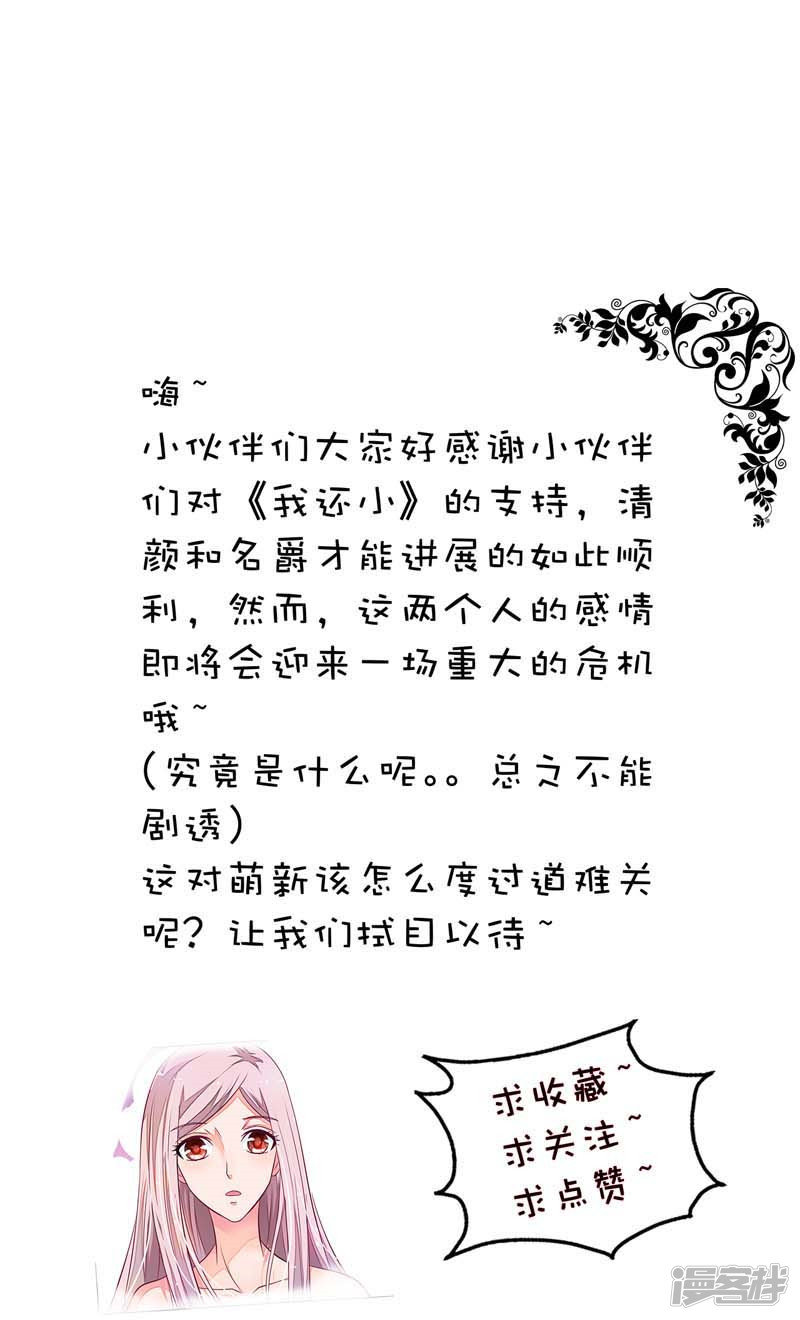 嗨~
小伙伴们大家好感谢小伙伴
们对《我还小》的支持，清
颜和名爵才能进展的如此顺
利，然而，这两个人的感情
即将会迎来一场重大的危机
哦~
(究竟是什么呢。。总之不能
剧透)
这对萌新该怎么度过道难关
呢？让我们拭目以待~
求收藏~
求关注~
求点赞~
漫客栈